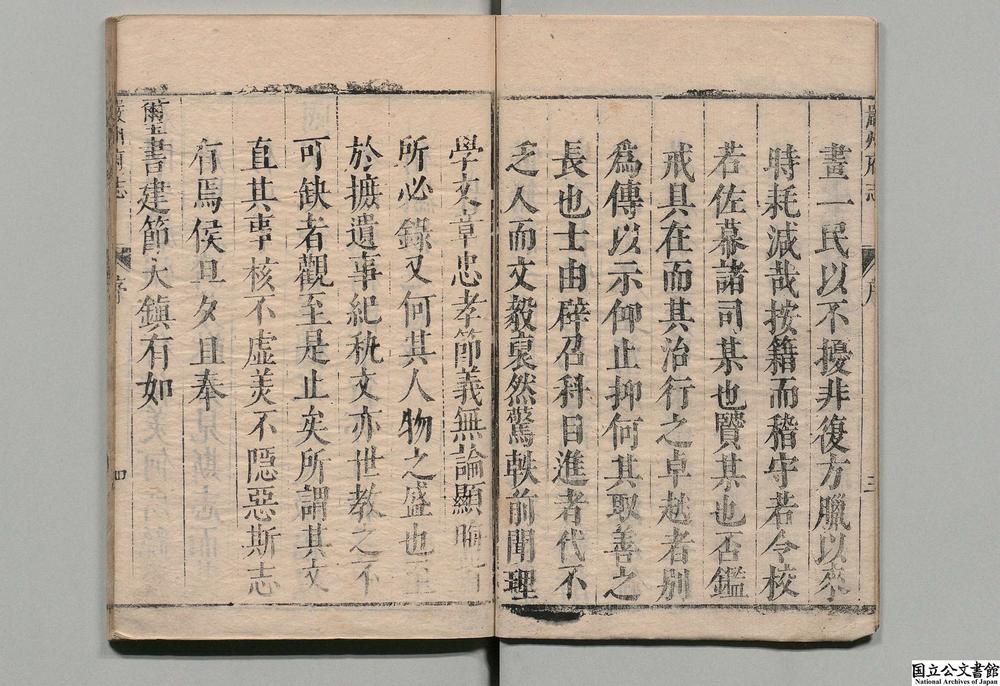 嚴州府志
序
三
畫一民以不擾非復方臘以來
時耗減哉按籍而稽守若令校
若佐幕諸司某也賢某也否鑑
戒具在而其治行之卓越者別
為傳以示仰止抑何其取善之
長也士由辟召科目進者代不
乏人而文毅裒然驚軼前聞理
學文章忠孝節義無論顯晦
所必錄又何其人物之盛也至
於摭遺事紀秇文亦世教之不
可缺者觀至是止矣所謂其文
直其事核不虛羙不隱惡斯志
有焉侯旦夕且奉
璽書建節大鎮有如
嚴州府志
序
四
国立公文書館
National Archives of Japan